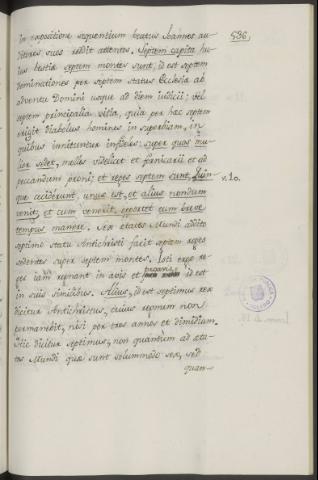 536.
in expositione sequentium beatus Joannes au-
ditores suos reddit attentos. Septem capita hu-
ius bestiæ septem montes sunt, id est septem
dominationes per septem status Ecclesiæ ab
adventu Domini usque ad diem iudicii; vel
septem principalia vitia, quia per hæc septem
erigit diabolus homines in superbiam, in
quibus innituntur infideles: super quas mu-
lier sedet, molles videlicet et fornicarii et ad
peccandum proni; et reges septem sunt. Quin-
que ceciderunt, unus est, et alius nondum
v. 10.
venit; et cum venerit, oportet eum breve
tempus manere. Sex ætates Mundi addito
septimo statu Antichristi facit septem reges
sedentes super septem montes. Isti ergo re-
ges iam regnant in avis et id est
in suis similibus. Alius, id est septimus rex
dicitur Antichristus, cuius regnum non
permanebit, nisi per tres annos et dimidium.
Hic dicitur septimus, non quantum ad æta-
tes Mundi quæ sunt solummodo sex, sed
quan-